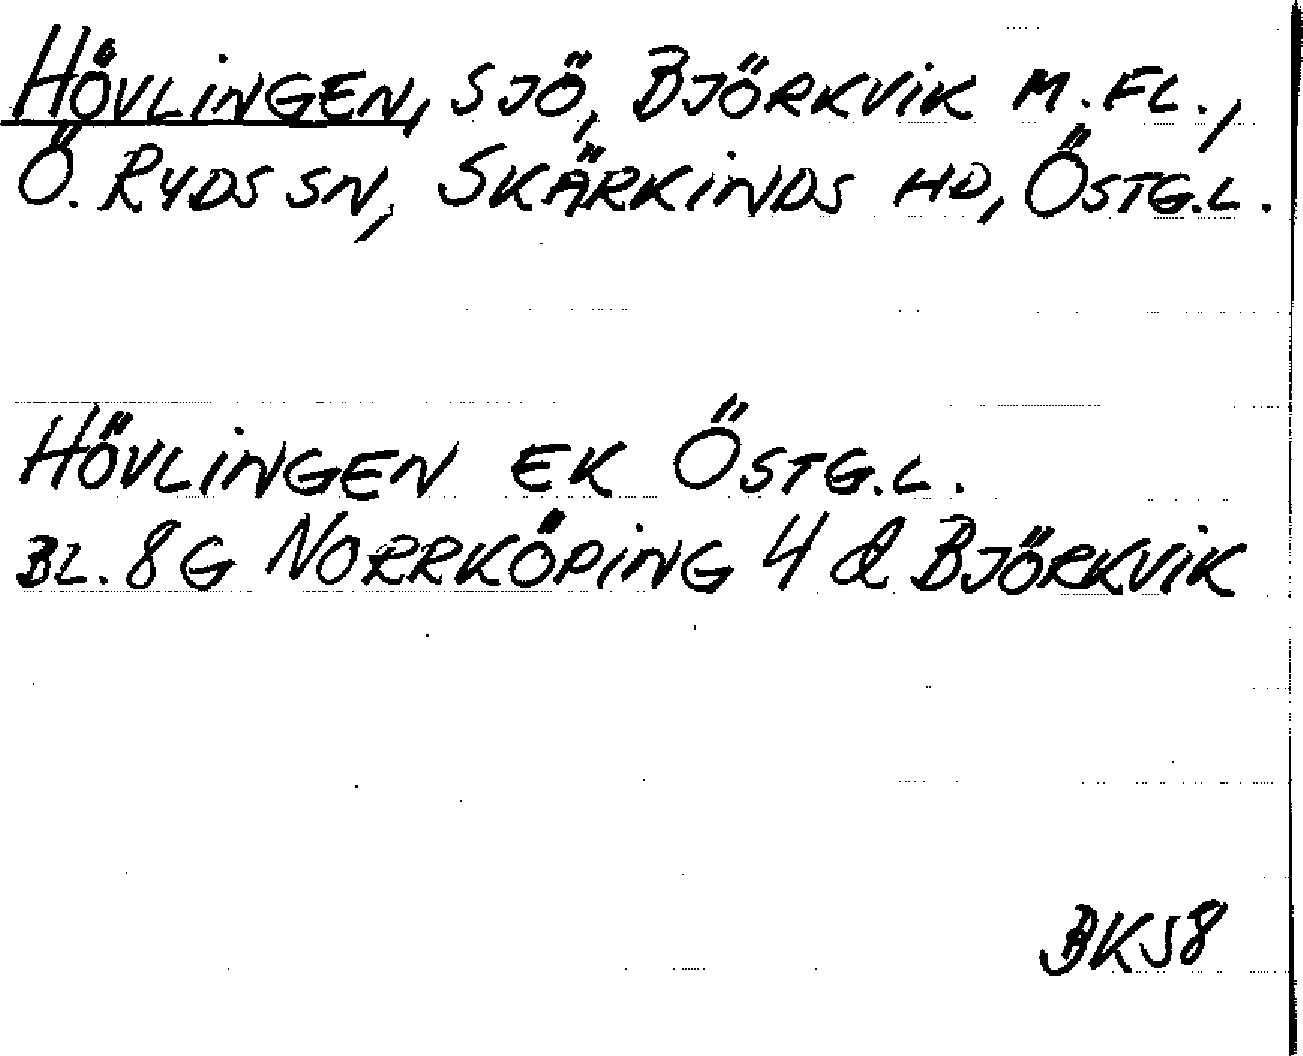 HÖVLINGEN, SJÖ, BJÖRKVIK M. FL.,
Ö. RYDS SN, SKÄRKINDS HD, ÖSTG.L.
HÖVLINGEN EK ÖSTG.L.
BL. 8G NORRKÖPING 4 d BJÖRKVIK
BK58